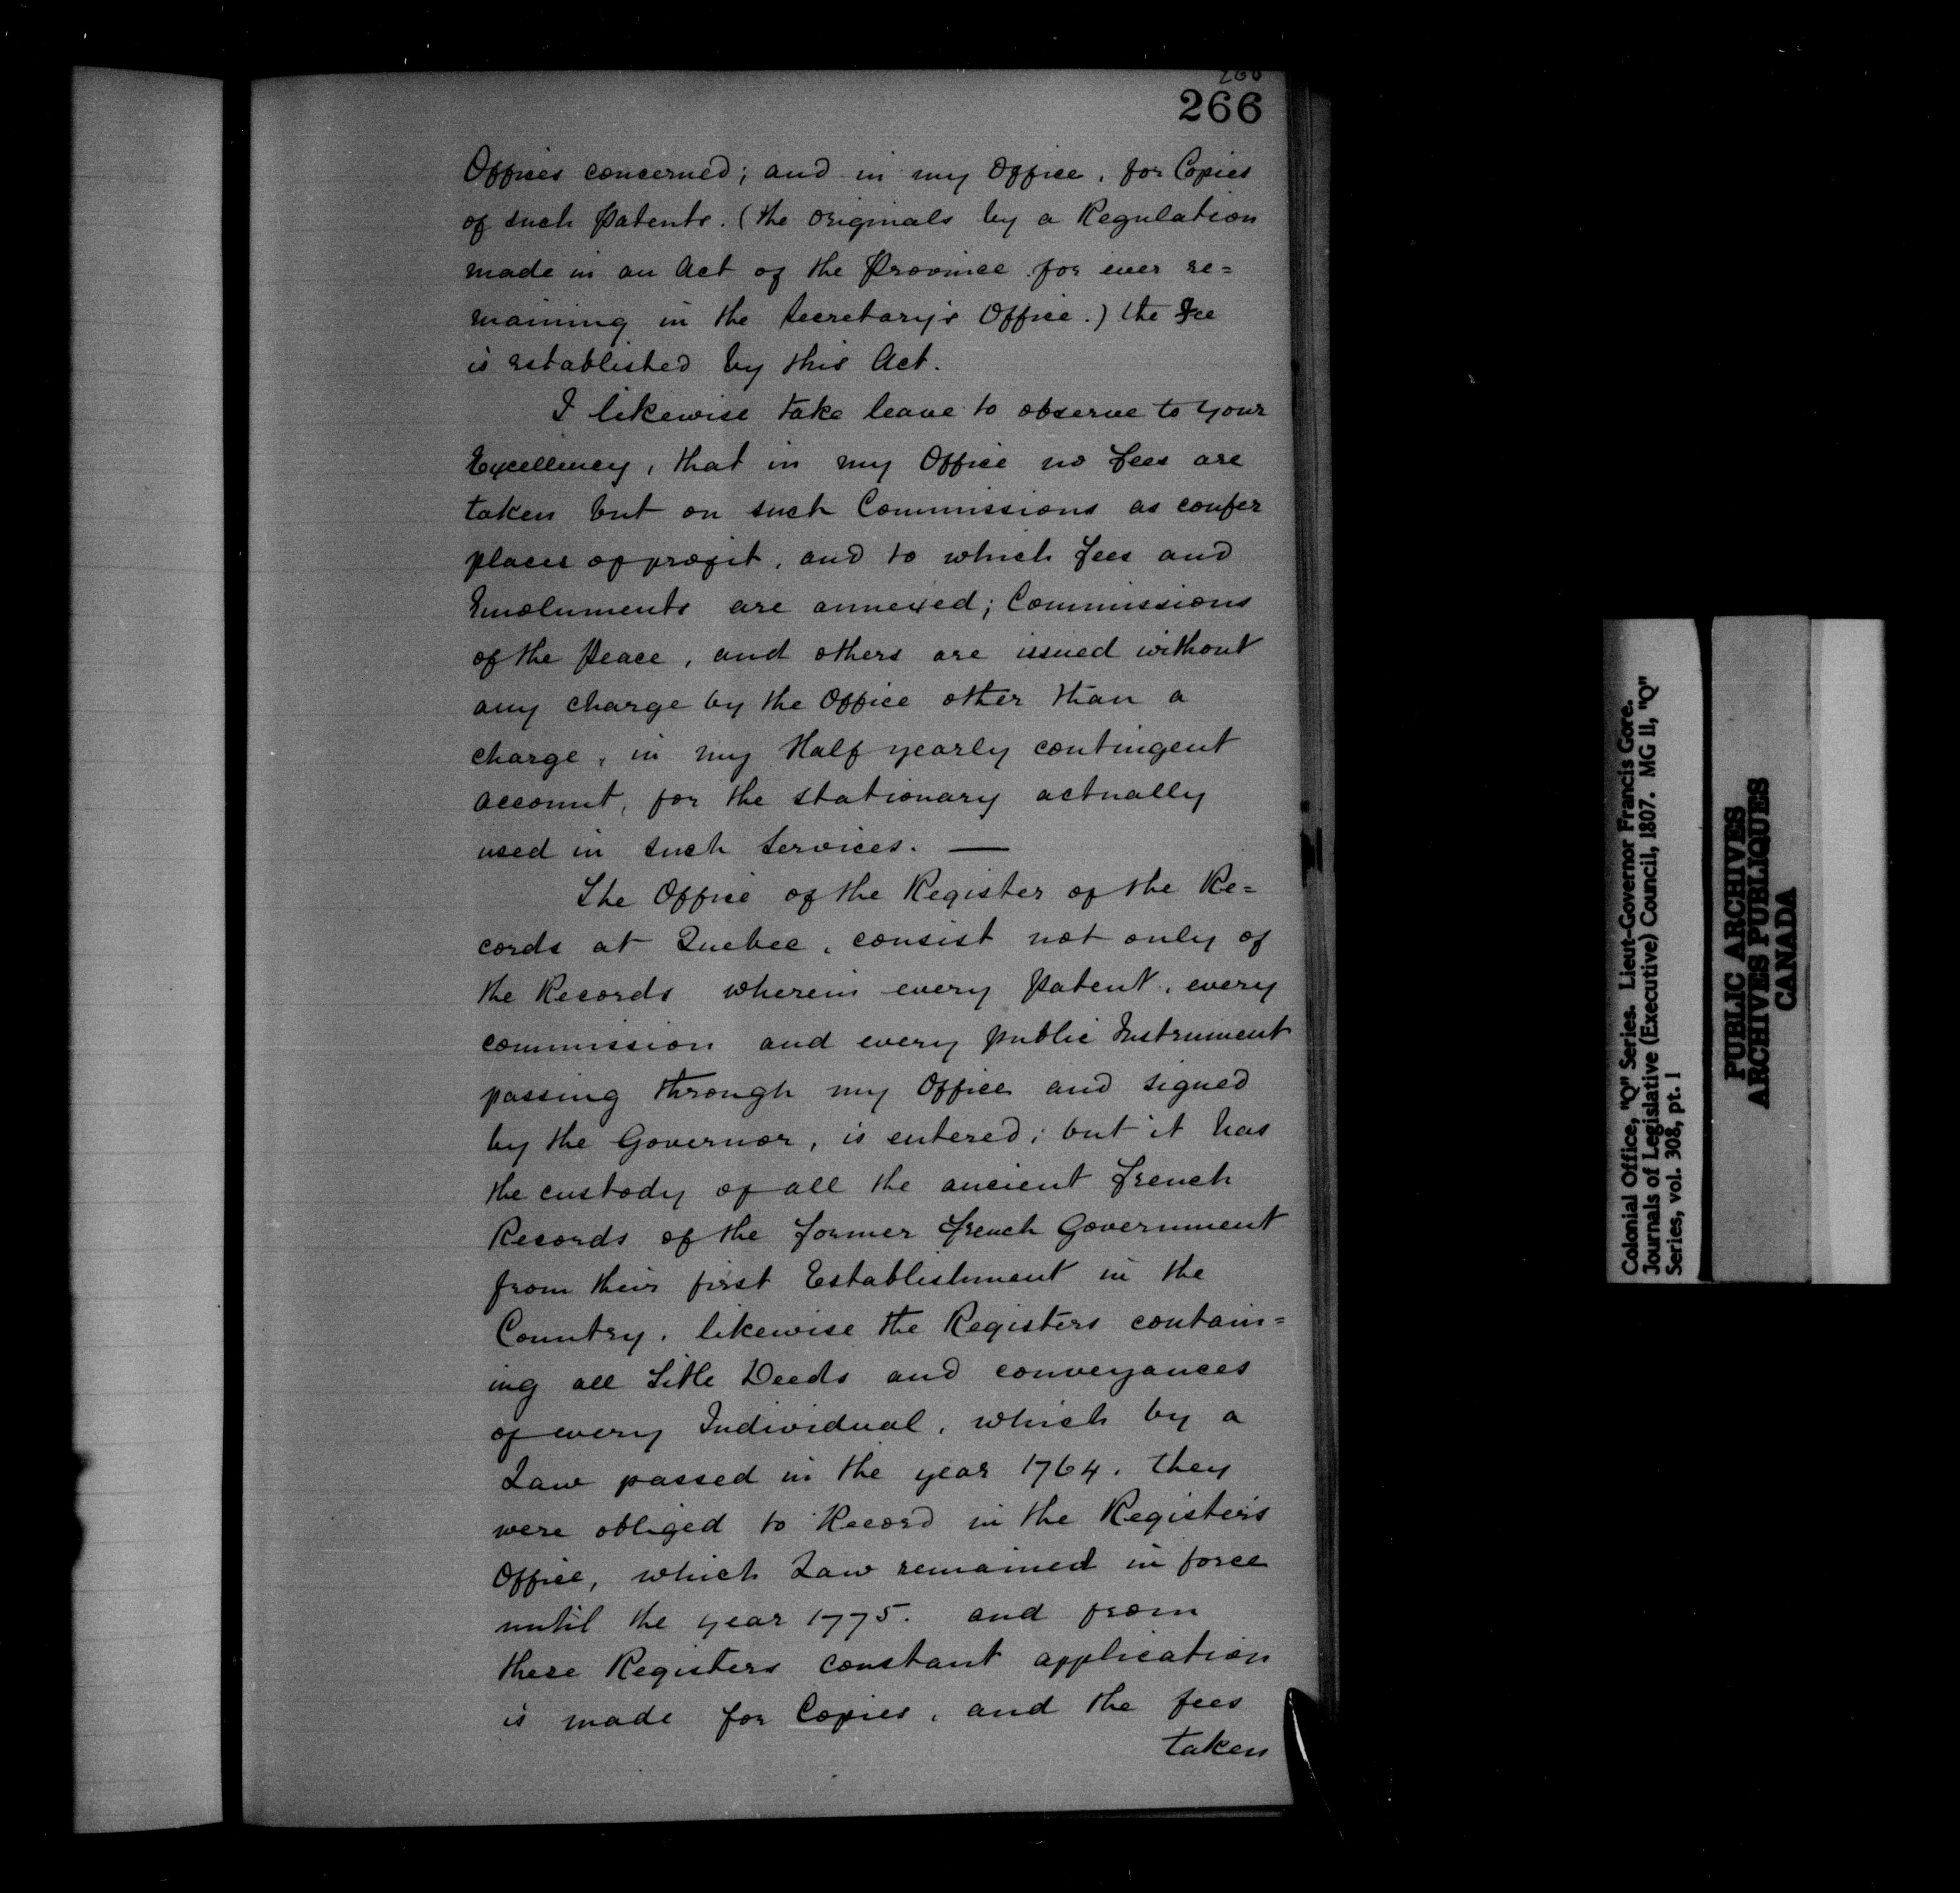 266
Offices concerned; and in my Office, for Copies
of such Patents. (the originals by a Regulation
made in an Act of the Province for ever re=
maining in the Secretary's Office.) the Fee
is established by this Act.
I likewise take leave to observe to your
Excellency, that in my Office no Fees are
taken but on such Commissions as confer
places of profit, and to which Fees and
Emoluments are annexed; Commissions
of the Peace, and others are issued without
any charge by the Office other than a
charge, in my Half yearly contingent
account, for the stationary actually
used in such Services. —
The Office of the Register of the Re=
cords at Quebec, consist not only of
the Records wherein every Patent, every
commission and every public Instrument
passing through my Office and signed
by the Governor, is entered; but it has
the custody of all the ancient French
Records of the former French Government
from their first Establishment in the
Country, likewise the Registers contain=
ing all Title Deeds and conveyances
of every Individual, which by a
Law passed in the year 1764, they
were obliged to Record in the Register's
Office, which Law remained in force
until the year 1775. and from
these Registers constant application
is made for Copies, and the fees
taken
Colonial Office, "Q" Series. Lieut-Governor Francis Gore.
Journals of Legislative (Executive) Council, 1807. MG 11, "Q"
Series, vol. 308, pt. 1
PUBLIC ARCHIVES
ARCHIVES PUBLIQUES
CANADA